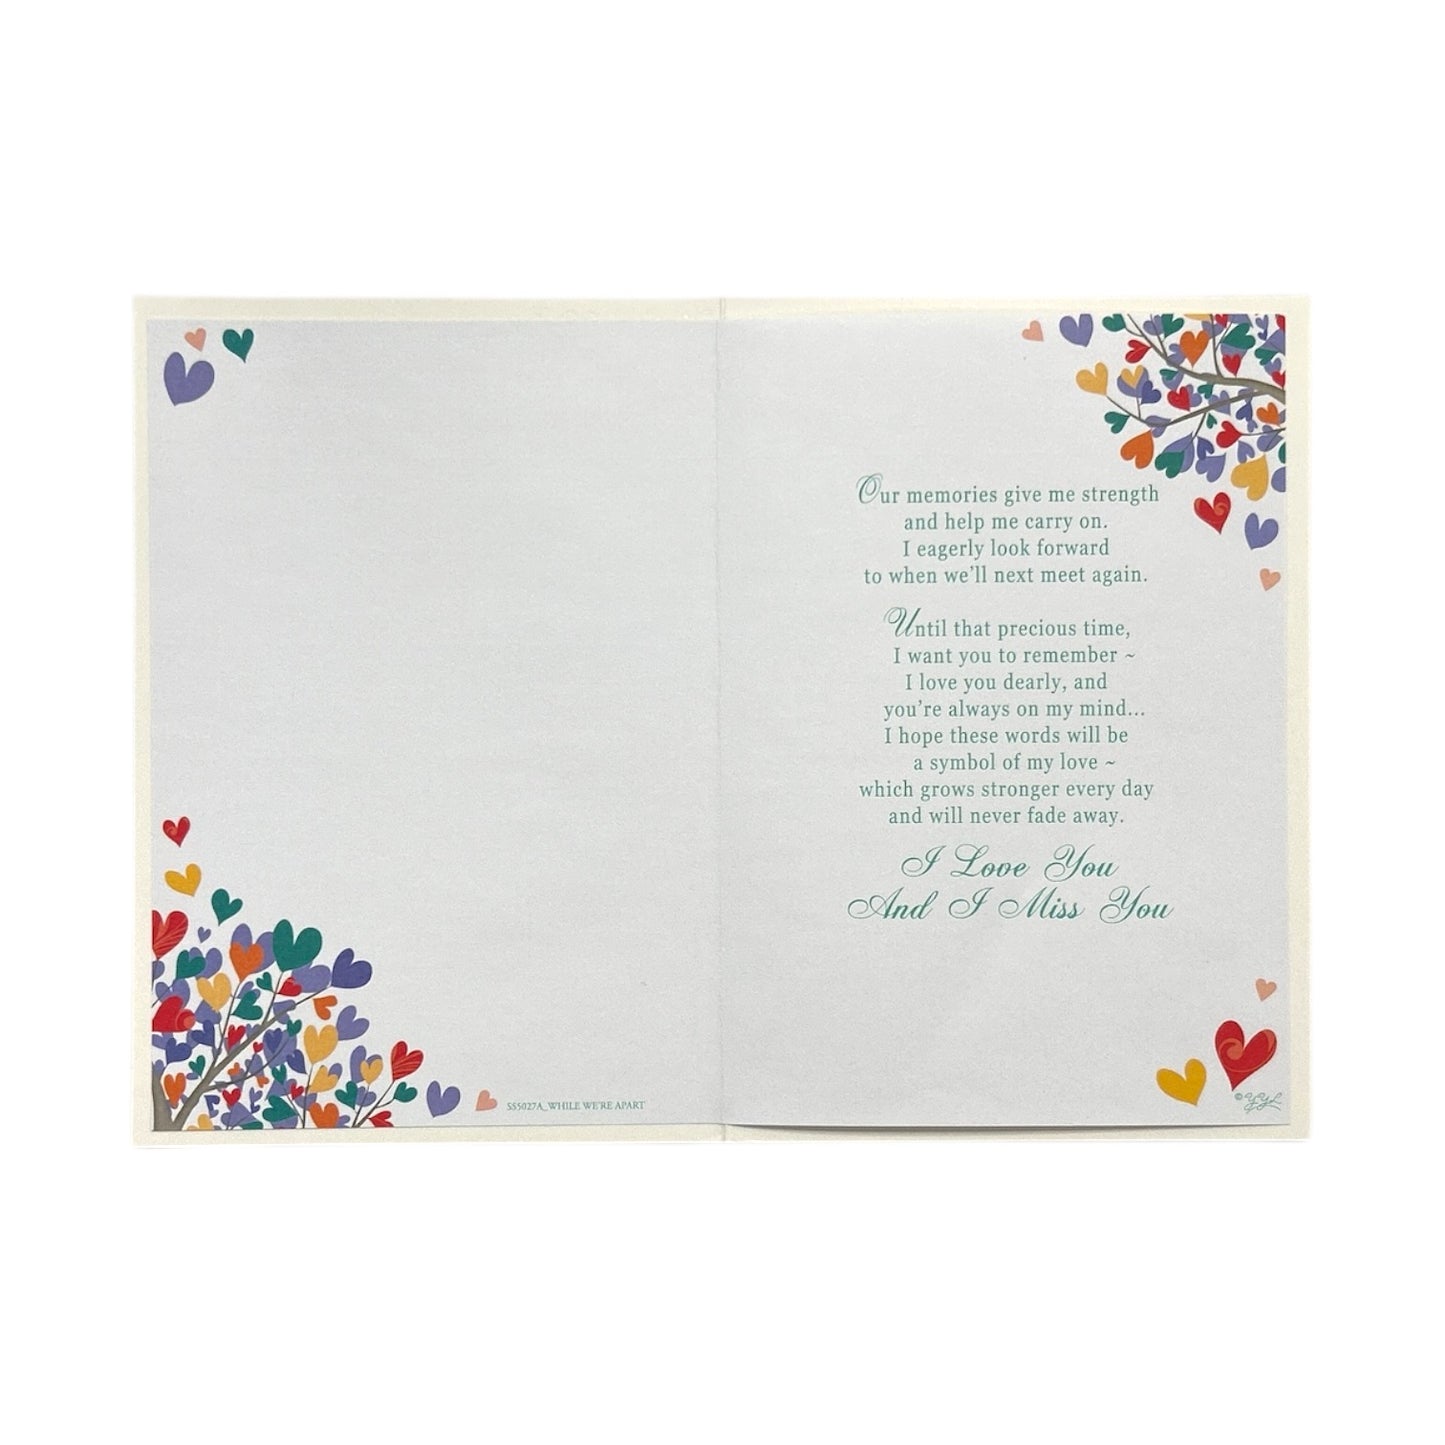 Our memories give me strength
and help me carry on.
I eagerly look forward
to when we'll next meet again.
Until that precious time,
I want you to remember ~
I love you dearly, and
you're always on my mind...
I hope these words will be
a symbol of my love ~
which grows stronger every day
and will never fade away.
I Love You
And I Miss You
SS5027A_WHILE WE'RE APART
©